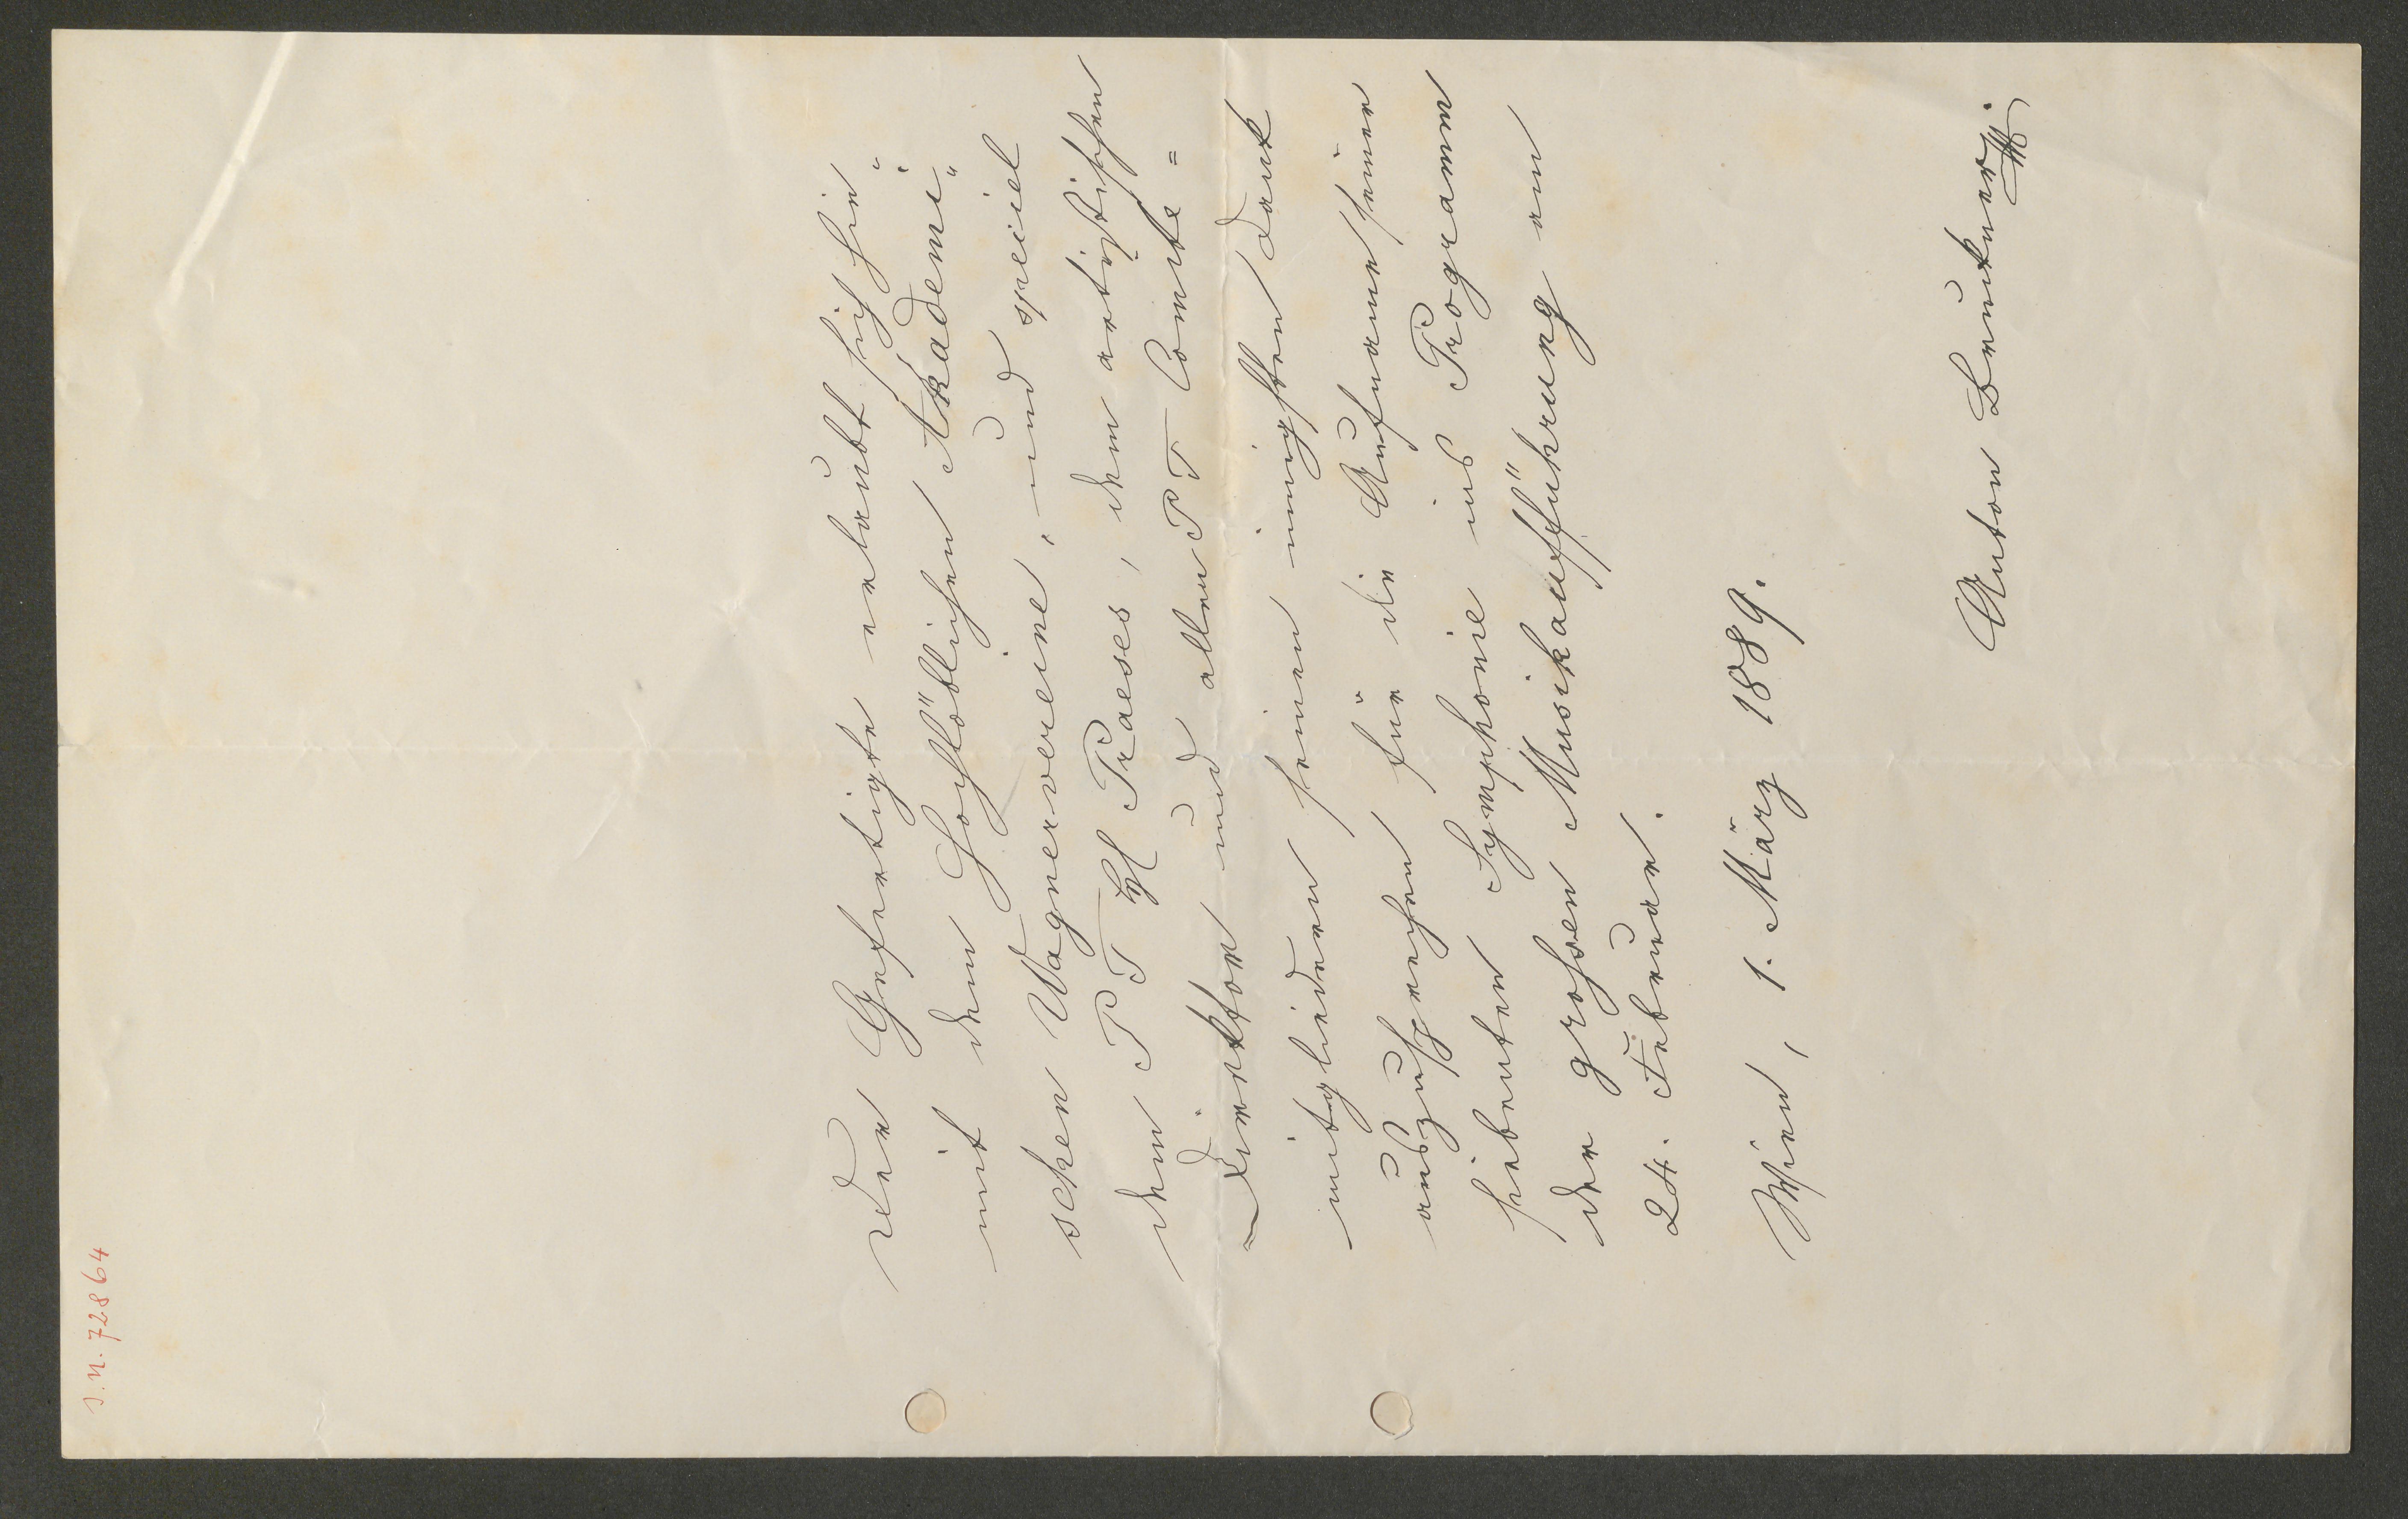 I.N. 72864
Der Gefertigte erlaubt sich hie-
mit dem Hochlöblichen Akademi-
schen Wagnervereine, und speciel
dem P T H H Praeses, dem artistischen
Direktor und allen P T Comite=
mitgliedern seinen innigsten Dank
auszusprechen für die Aufname seiner
siebenten Symphonie ins Programm
der grohsen Musikaufführung am
24. Februar.
Wien, 1. März 1889.
Anton Bruckner